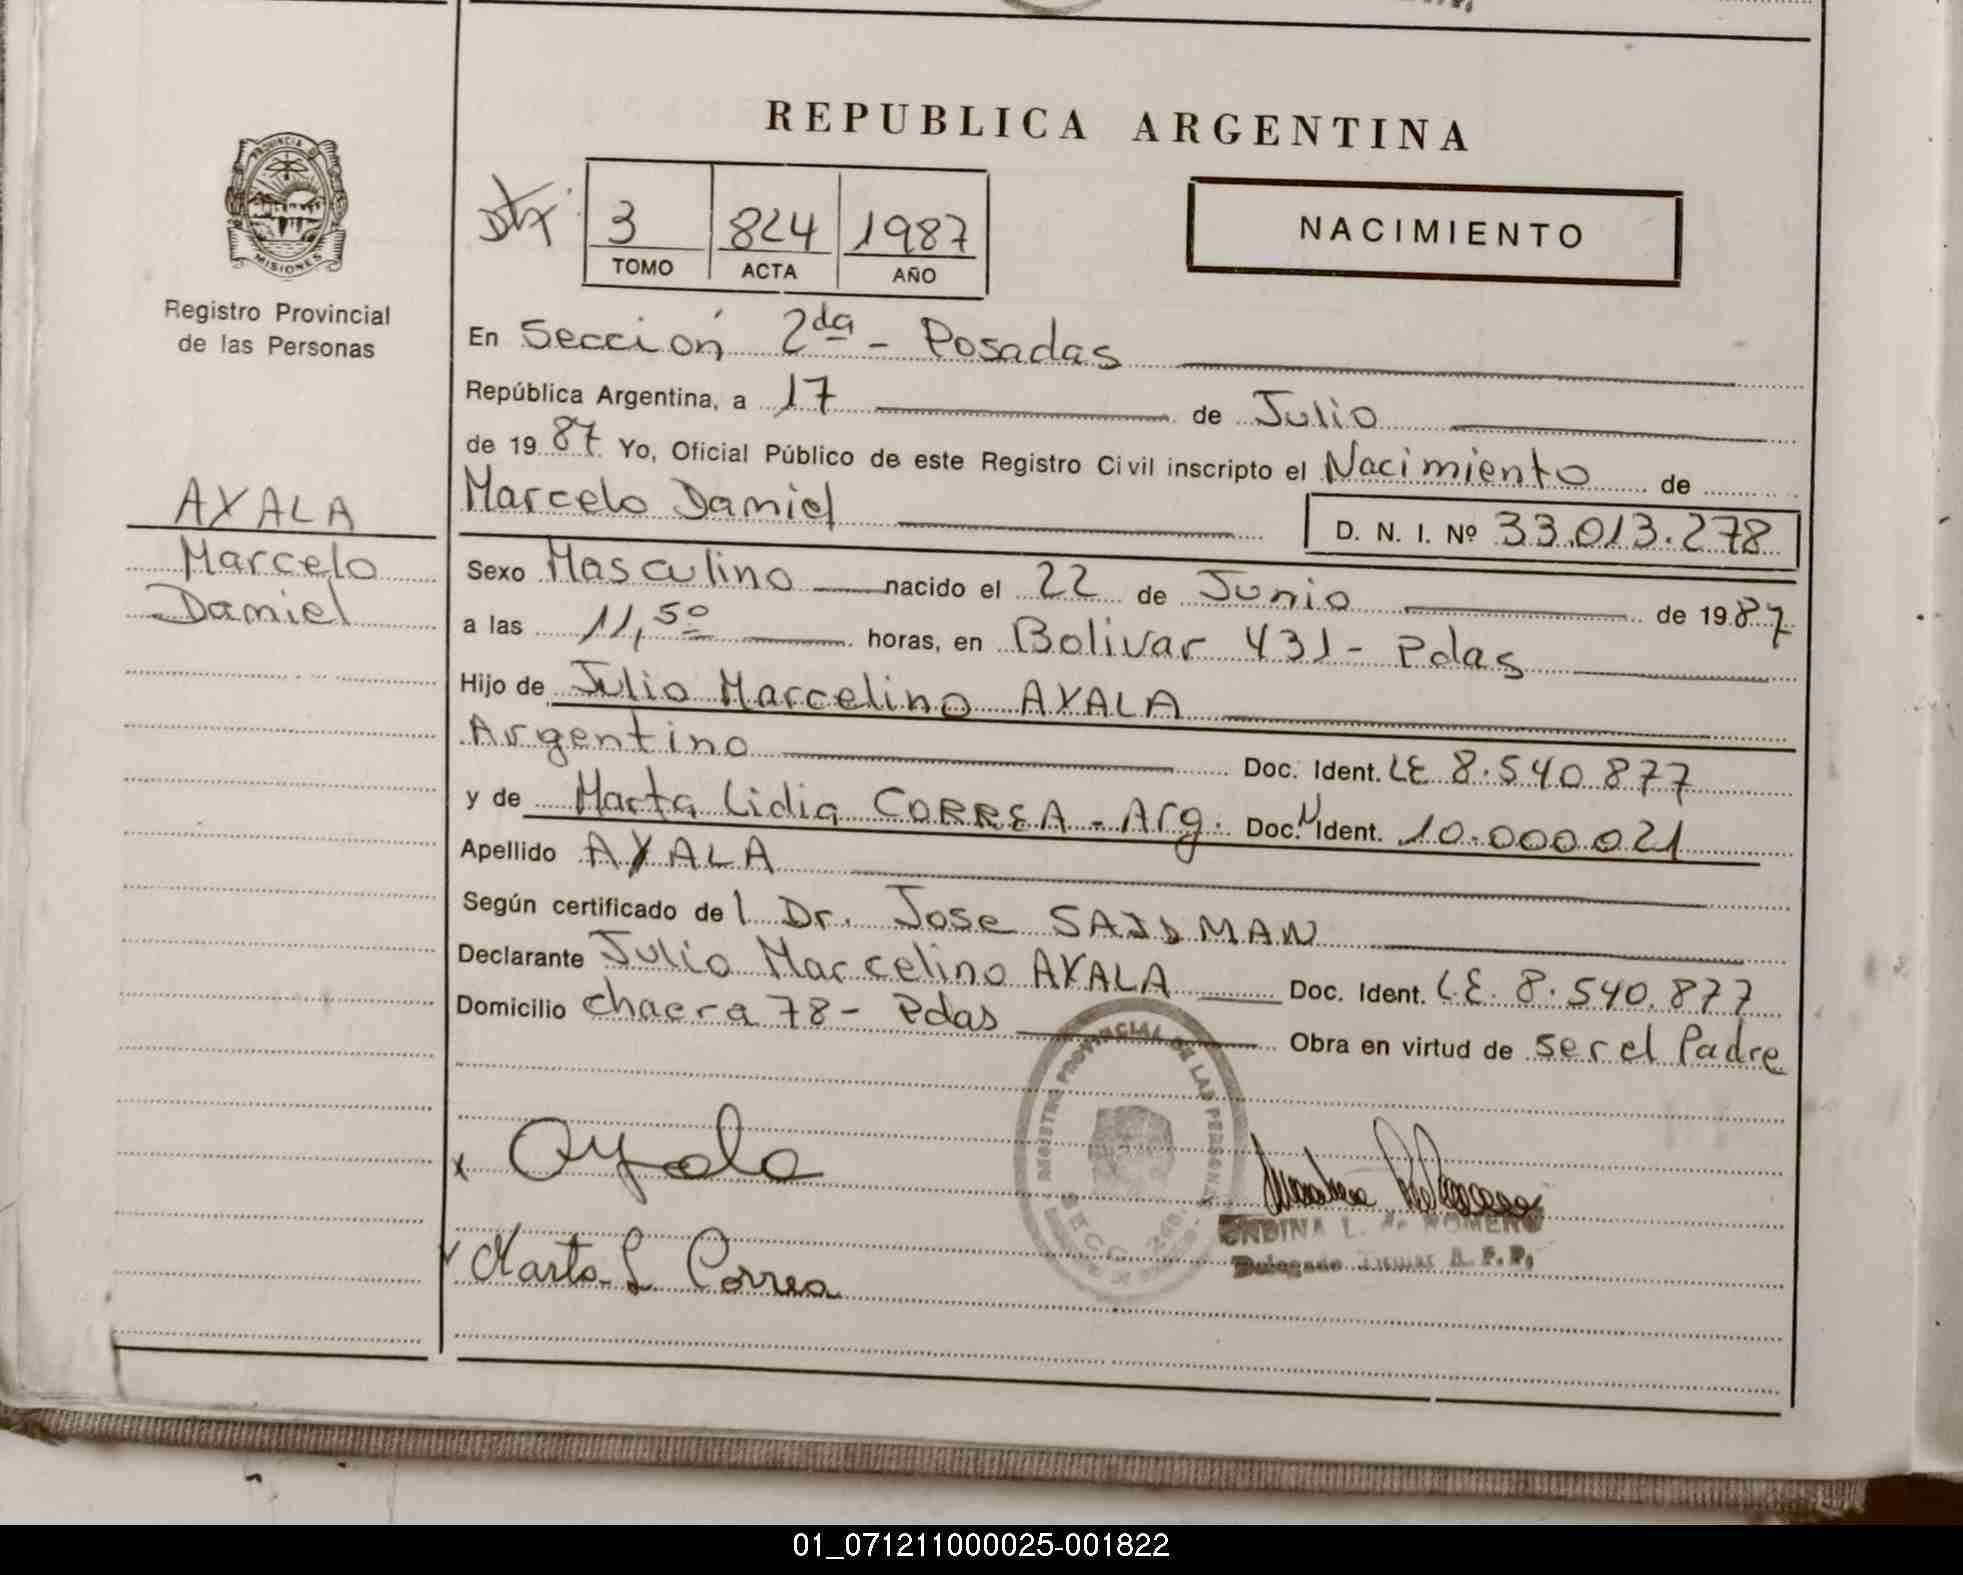 REPUBLICA ARGENTINA
PROVINCIA DE MISIONES
Registro Provincial
de las Personas
3 824 1987
TOMO ACTA AÑO
NACIMIENTO
En Sección 2da - Posadas
República Argentina, a 17 de Julio
de 1987 Yo, Oficial Público de este Registro Civil inscripto el Nacimiento de
Marcelo Daniel D. N. I. Nº 33.013.278
AYALA
Marcelo
Daniel
Sexo Masculino nacido el 22 de Junio de 1987
a las 11,50 horas, en Bolivar 431 - Pdas
Hijo de Julio Marcelino AYALA
Argentino Doc. Ident. LE 8.540.877
y de Marta Lidia CORREA - Arg. Doc. Ident. 10.000.021
Apellido AYALA
Según certificado del Dr. Jose
Declarante Julio Marcelino AYALA Doc. Ident. LE. 8.540.877
Domicilio chacra 78 - Pdas Obra en virtud de ser el Padre
x Ayala
Marta L Correa
PROVINCIAL DE LAS PERSONAS
L. de ROMERO
01_071211000025-001822